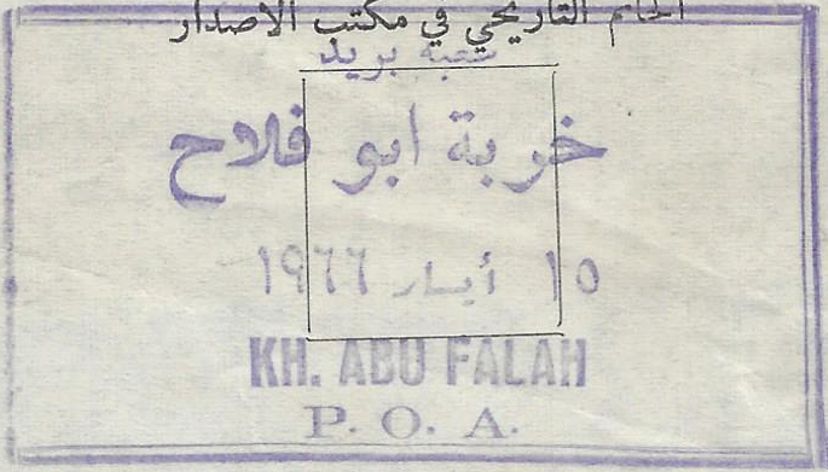 الخاتم التاريخي في مكتب الاصدار
شعبة بريد
خربة ابو فلاح
١٥ أيار ١٩٦٦
KH. ABU FALAH
P. O. A.